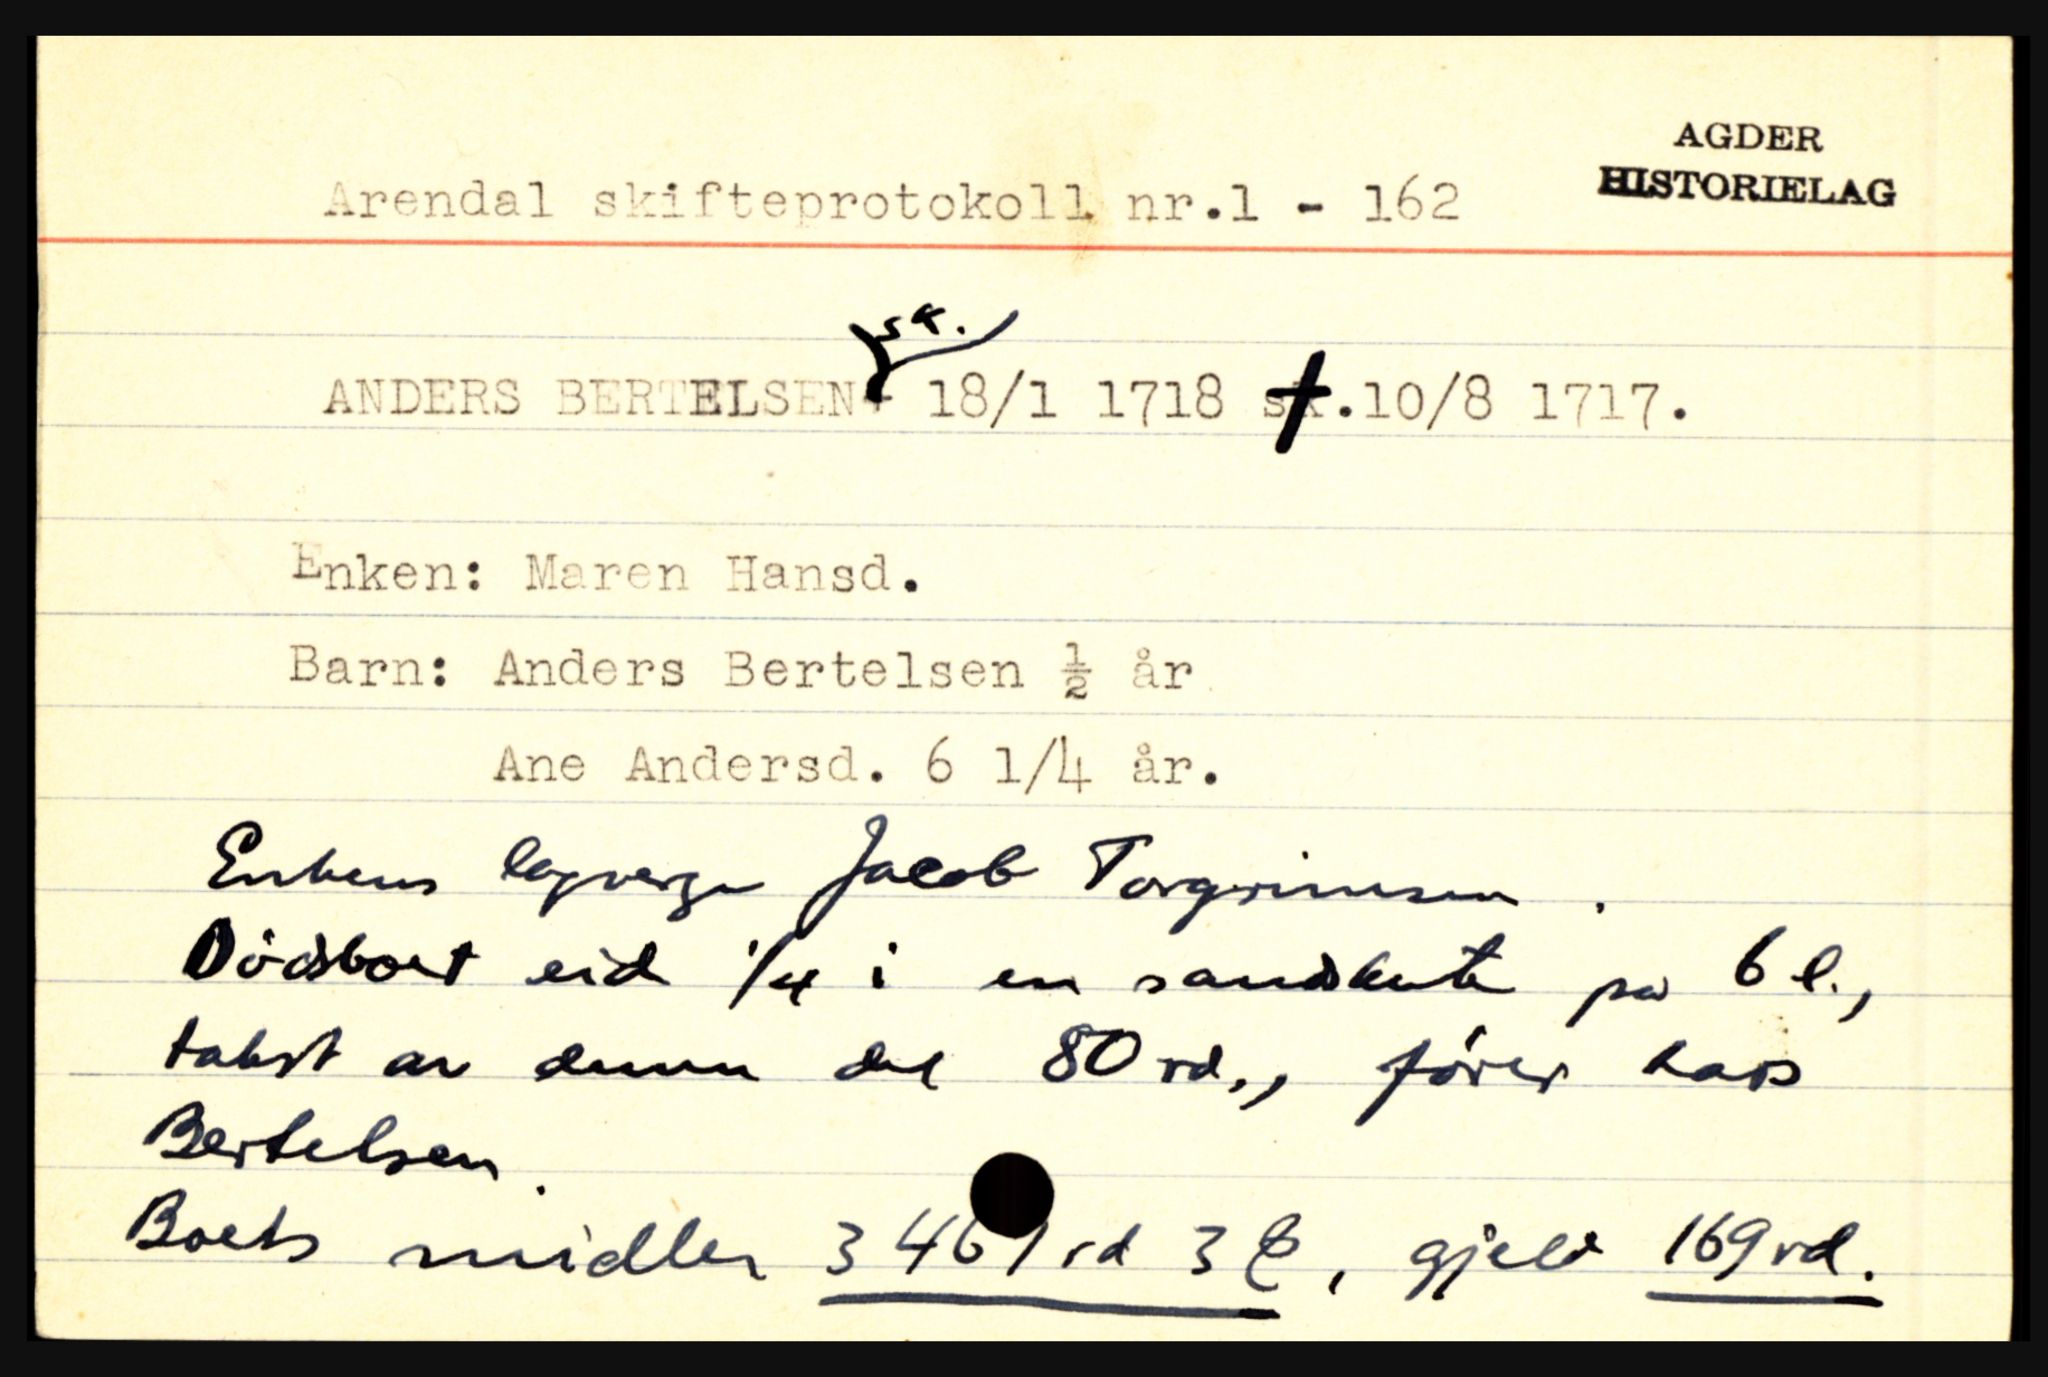 AGDER
HISTORIELAG
Arendal skifteprotokoll nr.1 - 162
sk.
ANDERS BERTELSEN 18/1 1718 †.10/8 1717.
Enken: Maren Hansd.
Barn: Anders Bertelsen ½ år
Ane Andersd. 6 1/4 år.
Enkens lagverge Jacob Torgrimsen.
Dödsboet eid 1/4 i en sandskute på 6 l.,
takst av denne del 80 rd., förer Lars
Bertelsen.
Boets midler 3461 rd 3, gjeld 169 rd.